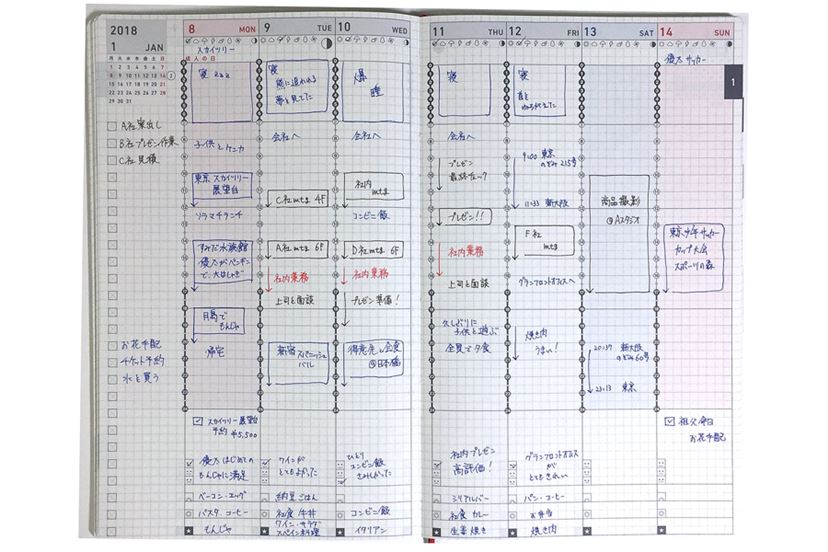 2018
1 JAN
月 火 水 木 金 土 日
1 2 3 4 5 6 7
8 9 10 11 12 13 14
15 16 17 18 19 20 21
22 23 24 25 26 27 28
29 30 31
A社 見積
B社プレゼン作業
C社 見積
お花手配
チケット予約
水を買う
8 MON
スカイツリー
成人の日
寝 zzz
子供とケンカ
東京スカイツリー
展望台
ソラマチランチ
すみだ水族館
優太がペンギン
で、大はしゃぎ
月島で
もんじゃ
帰宅
スカイツリー展望台
予約
¥5,500
優太はじめての
もんじゃに満足
ベーコン・エッグ
パスタ、コーヒー
もんじゃ
9 TUE
寝
熊に追われる
夢を見てた
会社へ
C社 mtg 4F
A社 mtg 6F
社内業務
上司と面談
新宿スパニッシュ
バル
ワインが
とてもよかった
納豆ごはん
社食 牛丼
ワイン・サラダ
スペイン料理
10 WED
爆
睡
会社へ
社内
mtg
コンビニ飯
D社 mtg 6F
社内業務
プレゼン準備!
得意先と会食
@日本橋
ひとり
コンビニ飯
さみしかった
コンビニ飯
イタリアン
11 THU
寝
会社へ
プレゼン
最終チェック
プレゼン!!
社内業務
上司と面談
久しぶりに
子供と遊ぶ
全員で夕食
社内プレゼン
高評価!
シリアルバー
社食 カレー
生姜焼き
12 FRI
寝
9:00 東京
のぞみ215号
11:33 新大阪
F社
mtg
グランフロントオフィスへ
焼き肉
うまい!
グランフロントオフィス
が
とてもきれい
パン・コーヒー
お弁当
焼き肉
13 SAT
商品撮影
@Aスタジオ
20:37 新大阪
のぞみ60号
23:13 東京
14 SUN
優太サッカー
1
東京少年サッカー
カップ大会
スポーツの森
祖父命日
お花手配